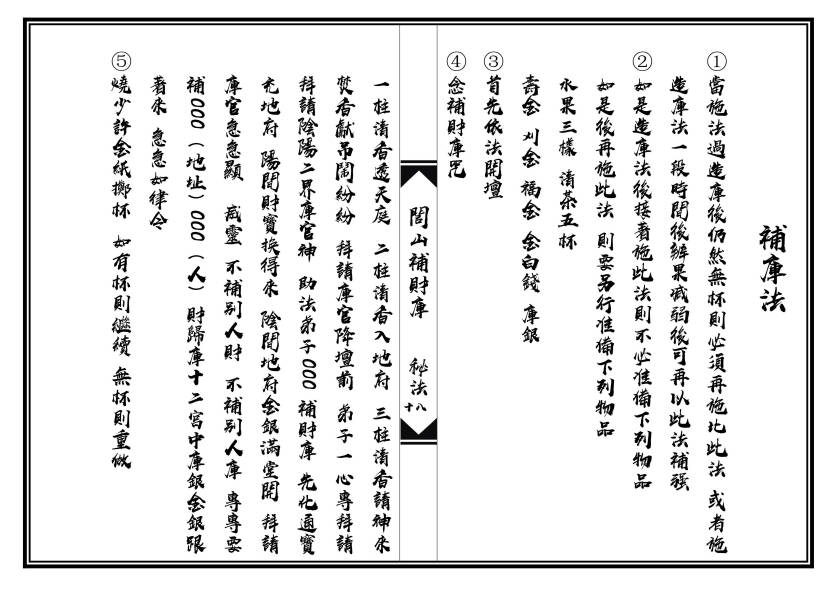 補庫法
①當施法過造庫後仍然無杯則必須再施比此法 或者施
造庫法一段時間後辦果減弱後可再以此法補強
②如是造庫法後接著施此法則不必准備下列物品
如是後再施此法 則要另行准備下列物品
水果三樣 清茶五杯
壽金 刈金 福金 金白錢 庫銀
③首先依法開壇
④念補財庫咒
閭山補財庫 秘法
十八
一柱清香透天庭 二柱清香入地府 三柱清香請神來
焚香獻吊鬧紛紛 拜請庫官降壇前 弟子一心專拜請
拜請陰陽二界庫官神 助法弟子000補財庫 先化通寶
充地府 陽間財寶換得來 陰間地府金銀滿堂開 拜請
庫官急急顯 威靈 不補別人財 不補別人庫 專專要
補000（地址）000（人） 財歸庫十二宮中庫銀金銀跟
著來 急急如律令
⑤燒少許金紙擲杯 如有杯則繼續 無杯則重做